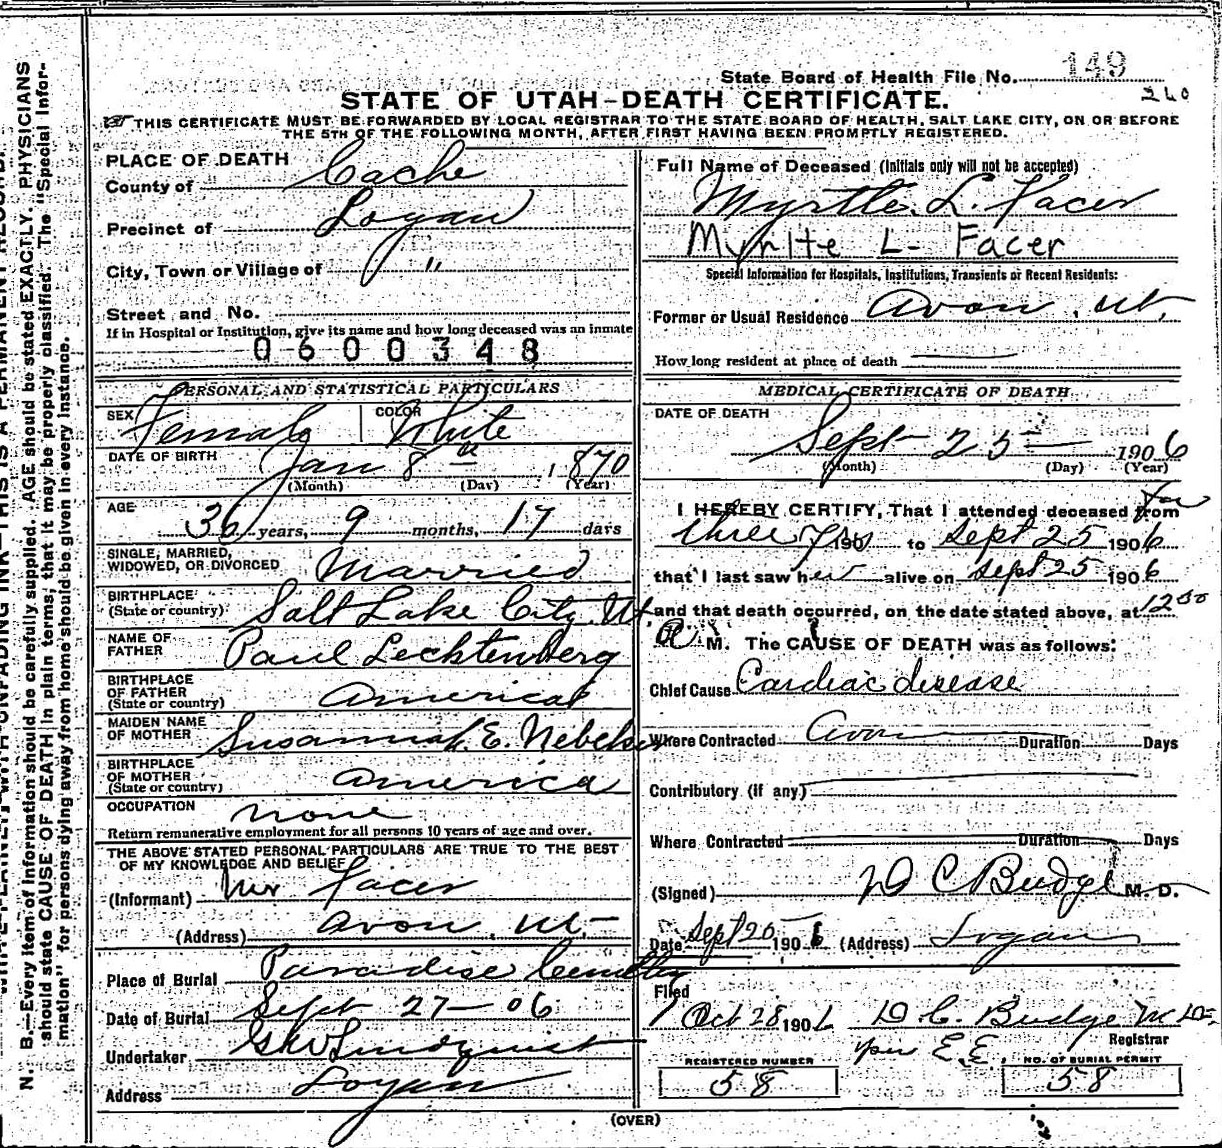 State Board of Health File No. 149
260
STATE OF UTAH-DEATH CERTIFICATE.
THIS CERTIFICATE MUST BE FORWARDED BY LOCAL REGISTRAR TO THE STATE BOARD OF HEALTH, SALT LAKE CITY, ON OR BEFORE
THE 5TH OF THE FOLLOWING MONTH, AFTER FIRST HAVING BEEN PROMPTLY REGISTERED.
PLACE OF DEATH
County of Cache
Precinct of Logan
City, Town or Village of "
Street and No.
If in Hospital or Institution, give its name and how long deceased was an inmate
0600348
PERSONAL AND STATISTICAL PARTICULARS
SEX Female COLOR White
DATE OF BIRTH Jan 8th 1870
(Month) (Day) (Year)
AGE 36 years, 9 months, 17 days
SINGLE, MARRIED,
WIDOWED, OR DIVORCED Married
BIRTHPLACE
(State or country) Salt Lake City Ut
NAME OF
FATHER Paul Lechtenberg
BIRTHPLACE
OF FATHER
(State or country) America
MAIDEN NAME
OF MOTHER Susannah E. Nebeker
BIRTHPLACE
OF MOTHER
(State or country) America
OCCUPATION none
Return remunerative employment for all persons 10 years of age and over.
THE ABOVE STATED PERSONAL PARTICULARS ARE TRUE TO THE BEST
OF MY KNOWLEDGE AND BELIEF
(Informant) Mr Facer
(Address) Avon, Ut
Place of Burial Paradise Cemetery
Date of Burial Sept 27-06
Undertaker Lindquist
Address Logan
Full Name of Deceased (Initials only will not be accepted)
Myrtle L. Facer
Myrlte L- Facer
Special Information for Hospitals, Institutions, Transients or Recent Residents:
Former or Usual Residence Avon, Ut.
How long resident at place of death
MEDICAL CERTIFICATE OF DEATH
DATE OF DEATH
Sept 25 1906
(Month) (Day) (Year)
I HEREBY CERTIFY, That I attended deceased from for
three yrs 190 to Sept 25 1906
that I last saw her alive on Sept 25 1906
and that death occurred, on the date stated above, at 12 00
A M. The CAUSE OF DEATH was as follows:
Chief Cause Cardiac disease
Where Contracted Avon Duration Days
Contributory (if any)
Where Contracted Duration Days
(Signed) D C Budge M. D.
Date Sept 26 1906 (Address) Logan
Filed
Oct 28 190 D. C. Budge M.D.
Registrar
per E.E.
REGISTERED NUMBER
58
NO. OF BURIAL PERMIT
58
(OVER)
N. B.—Every item of information should be carefully supplied. AGE should be stated EXACTLY. PHYSICIANS
should state CAUSE OF DEATH in plain terms, that it may be properly classified. The "Special Infor-
mation" for persons dying away from home should be given in every instance.